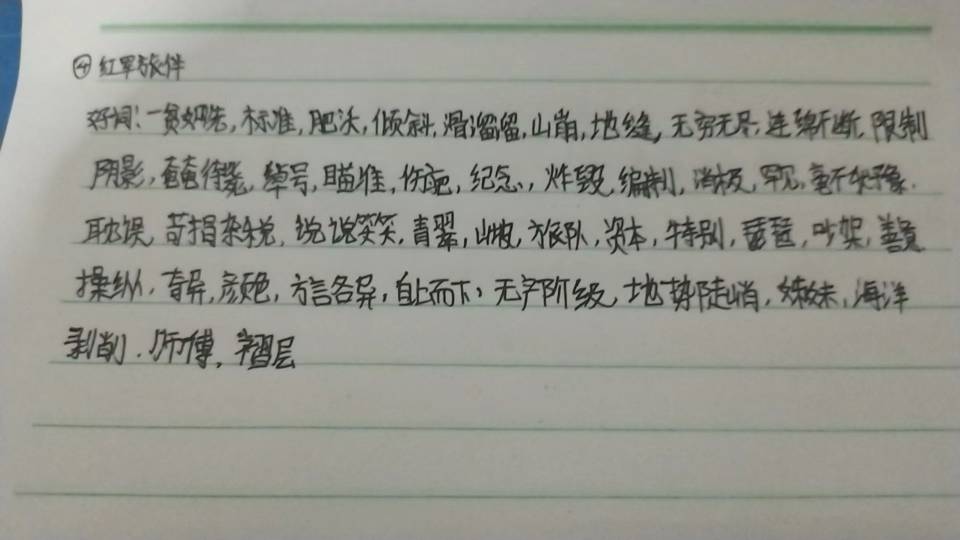 ④红军旅伴
好词:一贫如洗,标准,肥沃,倾斜,滑溜溜,山崩,地缝,无穷无尽,连绵不断,限制
阴影,奄奄待毙,绰号,瞄准,伤疤,纪念,炸毁,编制,消极,罕见,毫不犹豫.
耽误,苛捐杂税,说说笑笑,青翠,山坡,旅队,资本,特别,琵琶,吵架,善良
操纵,奇异,颜色,方言各异,自上而下,无产阶级,地势陡峭,姊妹,海洋
剥削.师傅,褶层